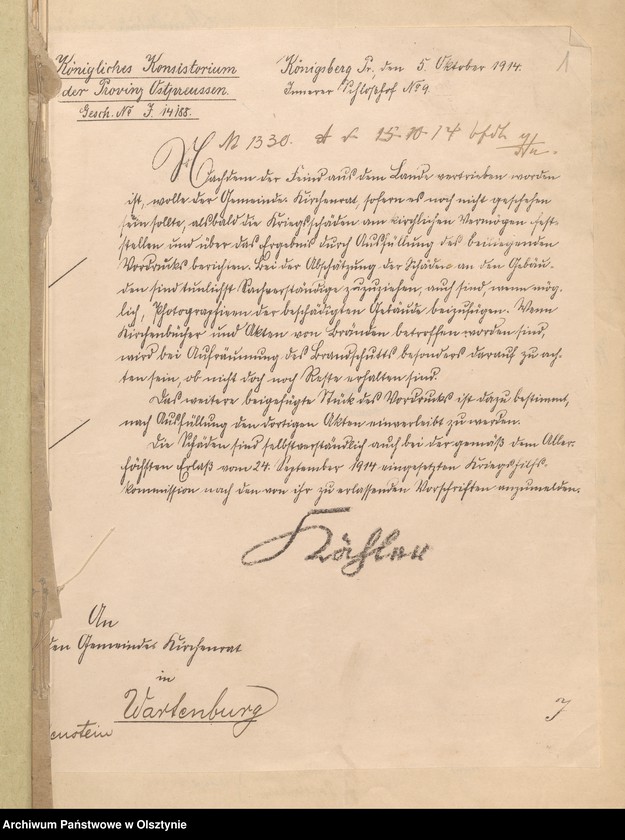 Königliches Konsistorium
der Provinz Ostpreussen.
Gesch. No I. 14188.
Königsberg Pr., den 5. Oktober 1914.
Innerer Schloßhof No 9.
1
N 1330. 15.10.14
Nachdem der Feind aus dem Lande vertrieben worden
ist, wolle der Gemeinde-Kirchenrat, sofern es noch nicht geschehen
sein sollte, alsbald die Kriegsschäden am kirchlichen Vermögen fest-
stellen und über das Ergebnis durch Ausfüllung des beiliegenden
Vordrucks berichten. Bei der Abschätzung der Schäden an den Gebäu-
den sind tunlichst Sachverständige zuzuziehen, auch sind, wenn mög-
lich, Photographieen der beschädigten Gebäude beizufügen. Wenn
Kirchenbücher und Akten von Bränden betroffen worden sind,
wird bei Aufräumung des Brandschutts besonders darauf zu ach-
ten sein, ob nicht doch noch Reste erhalten sind.
Das weitere beigefügte Stück des Vordrucks ist dazu bestimmt,
nach Ausfüllung den dortigen Akten einverleibt zu werden.
Die Schäden sind selbstverständlich auch bei der gemäß dem Aller-
höchsten Erlaß vom 24. September 1914 eingesetzten Kriegshilfs-
kommission nach den von ihr zu erlassenden Vorschriften anzumelden.
Kähler
An
den Gemeinde-Kirchenrat
in
Wartenburg
enstein
J
Archiwum Państwowe w Olsztynie